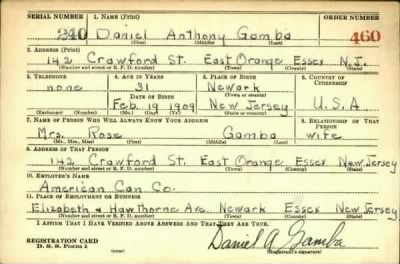 SERIAL NUMBER 1. NAME (Print) ORDER NUMBER
240 Daniel Anthony Gamba 460
(First) (Middle) (Last)
2. ADDRESS (Print)
142 Crawford St. East Orange Essex N.J.
(Number and street or R. F. D. number) (Town) (County) (State)
3. TELEPHONE 4. AGE IN YEARS 5. PLACE OF BIRTH 6. COUNTRY OF CITIZENSHIP
none 31 Newark
DATE OF BIRTH (Town or county)
Feb. 19 1909 New Jersey U.S.A
(Mo.) (Day) (Yr.) (State or country)
7. NAME OF PERSON WHO WILL ALWAYS KNOW YOUR ADDRESS 8. RELATIONSHIP OF THAT PERSON
Mrs. Rose Gamba wife
(Mr., Mrs., Miss) (First) (Middle) (Last)
9. ADDRESS OF THAT PERSON
142 Crawford St. East Orange Essex New Jersey
(Number and street or R. F. D. number) (Town) (County) (State)
10. EMPLOYER'S NAME
American Can Co.
11. PLACE OF EMPLOYMENT OR BUSINESS
Elizabeth & Hawthorne Ave. Newark Essex New Jersey
(Number and street or R. F. D. number) (Town) (County) (State)
I AFFIRM THAT I HAVE VERIFIED ABOVE ANSWERS AND THAT THEY ARE TRUE.
REGISTRATION CARD
D. S. S. Form 1 (over) Daniel A Gamba
(Registrant's signature)